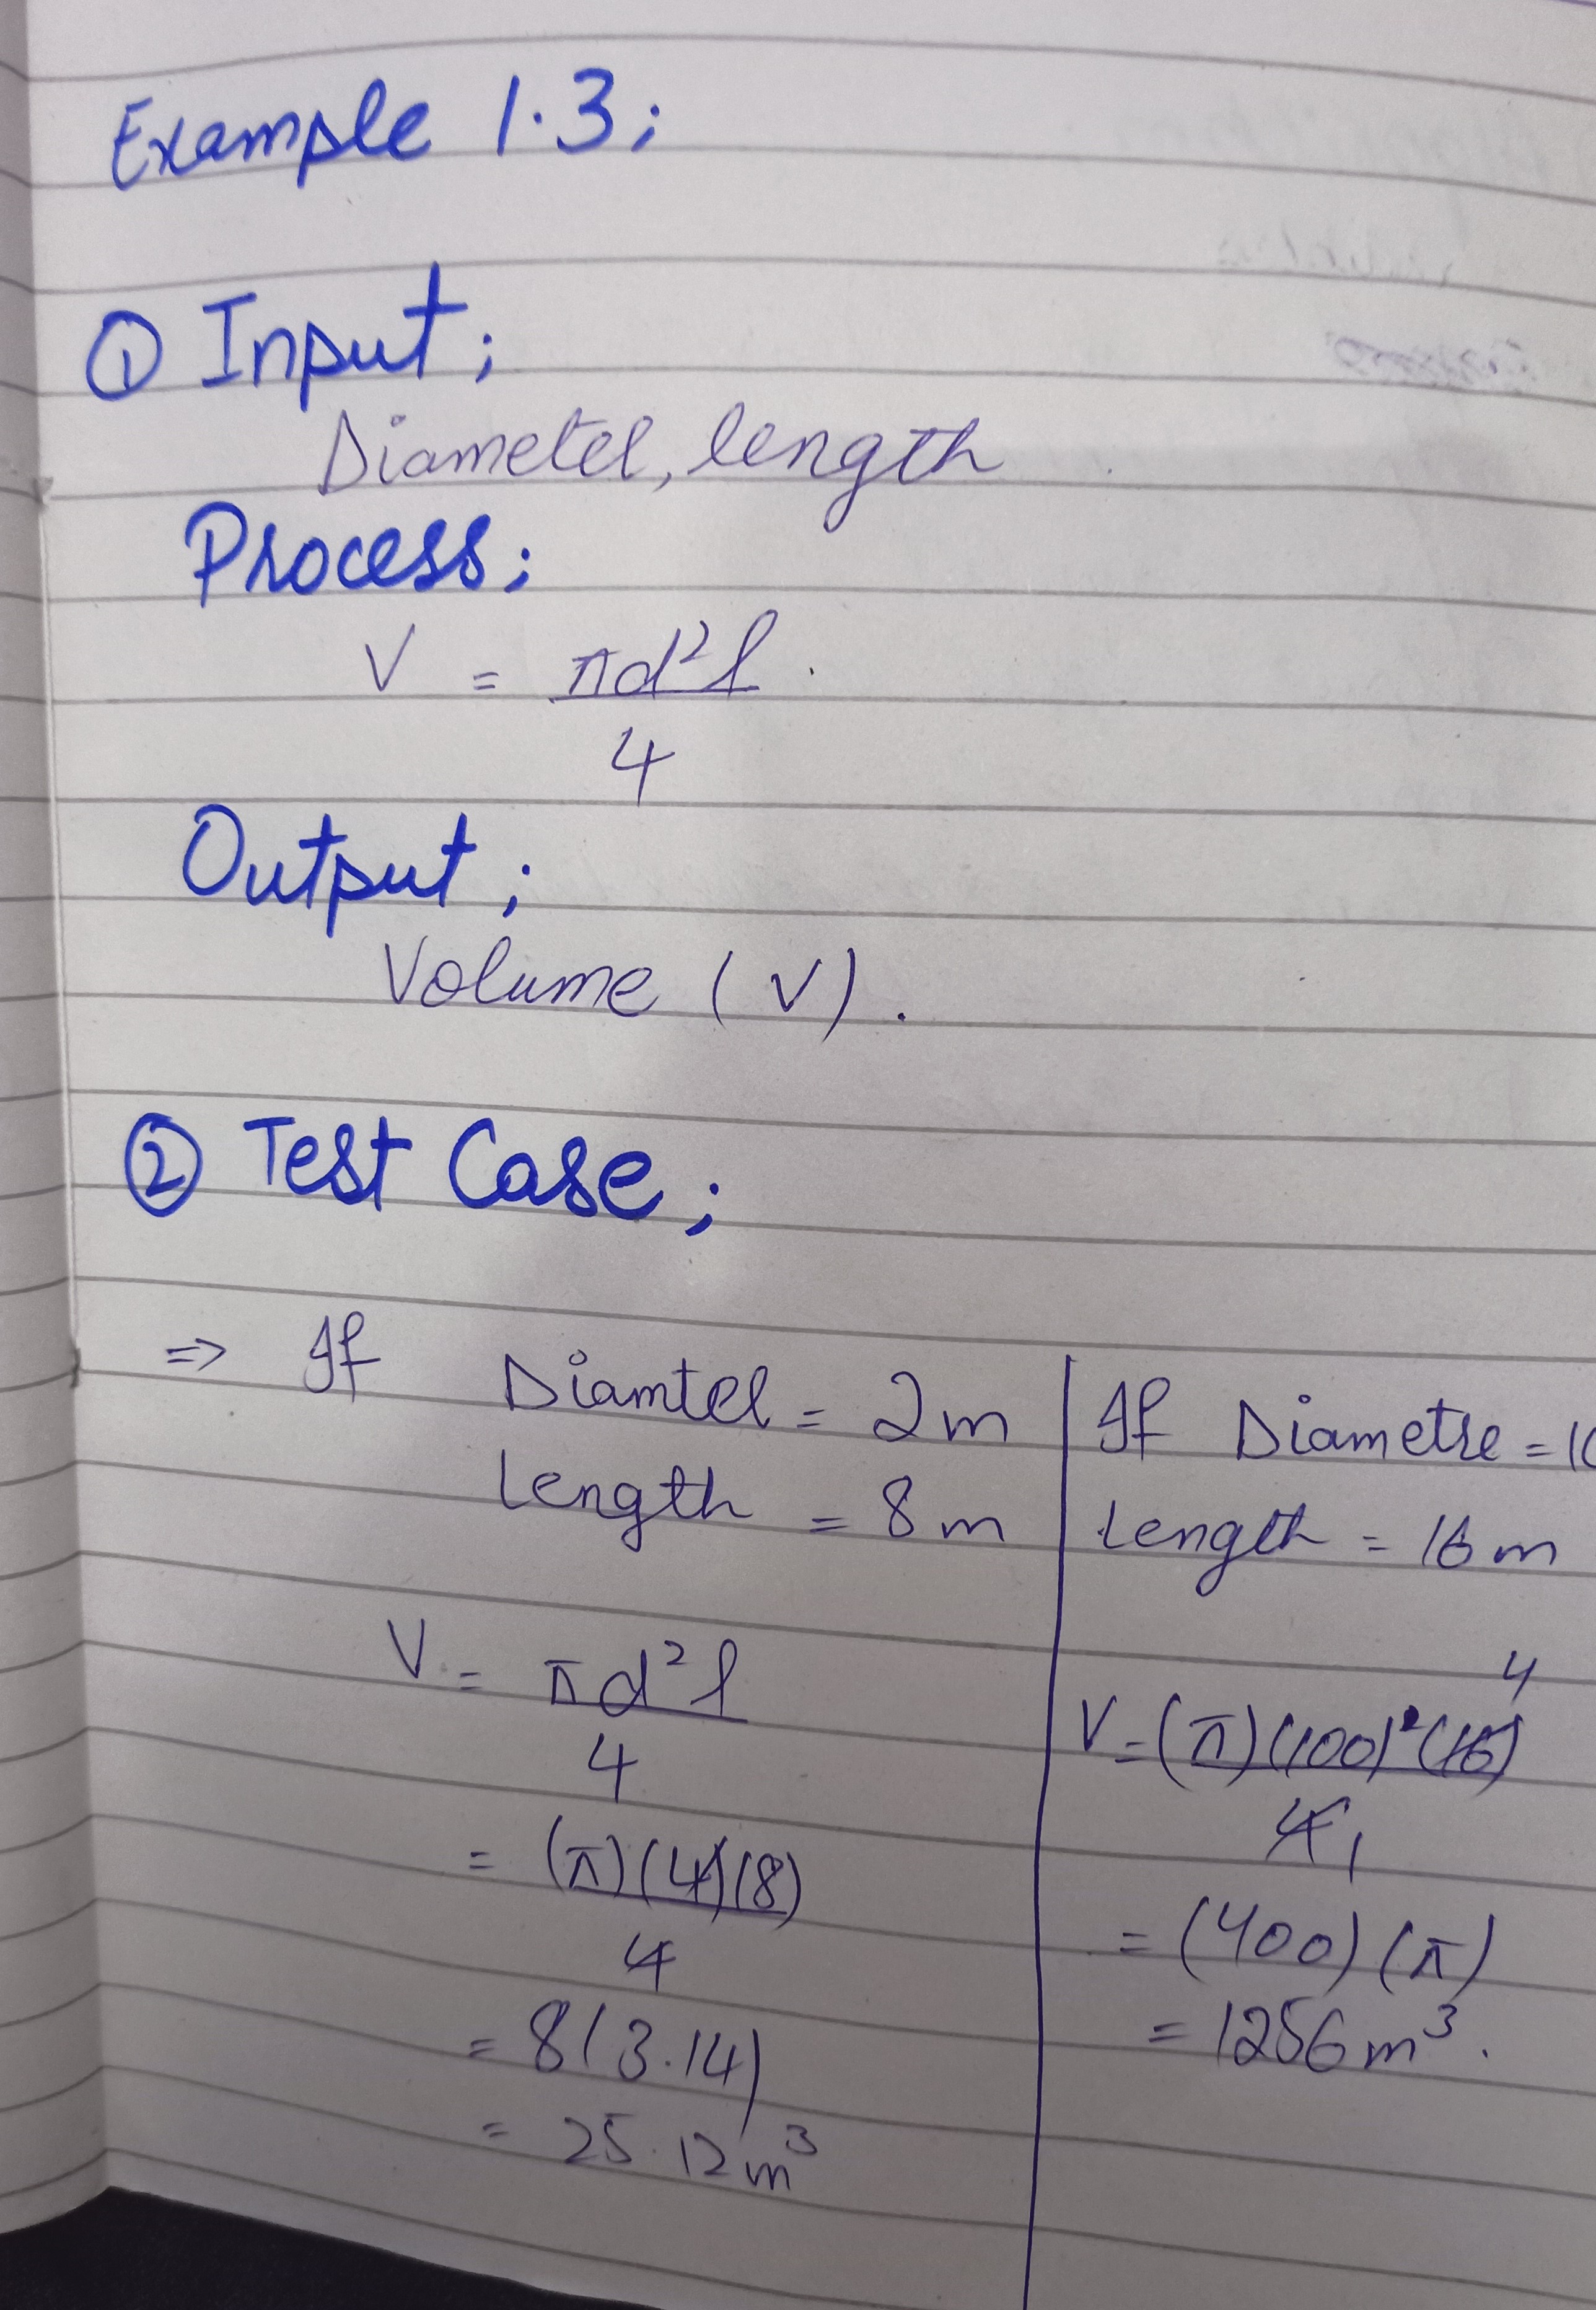 Example 1.3;
① Input;
Diameter, length
Process;
V = πd²l.
4
Output;
Volume (V).
② Test Case;
⇒ If Diamter = 2m
Length = 8m
V = πd²l
4
= (π)(4)(8)
4
= 8(3.14)
= 25.12m³
If Diametre = 10
Length = 16m
4
V = (π)(100)(16)
4 1
= (400)(π)
= 1256m³.